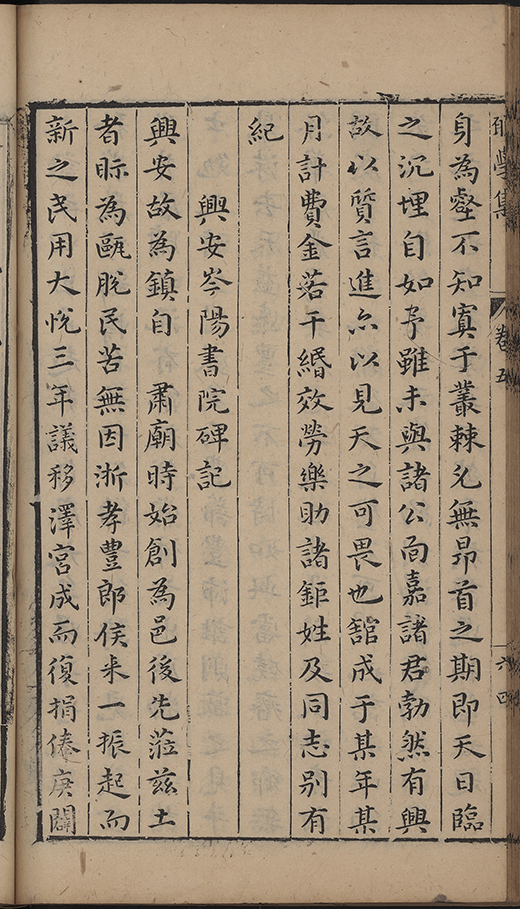 學集 卷五 六四
身為壑不知寘于叢棘允無昂首之期即天日臨
之沉埋自如予雖未與諸公面嘉諸君勃然有興
故以質言進亦以見天之可畏也舘成于某年某
月計費金若干緡效勞樂助諸鉅姓及同志别有
紀
興安岑陽書院碑記
興安故為鎮自 肅廟時始創為邑後先蒞兹土
者眎為甌脫民苦無因浙孝豐郎侯来一振起而
新之民用大悅三年議移澤宮成而復捐俸庚闢